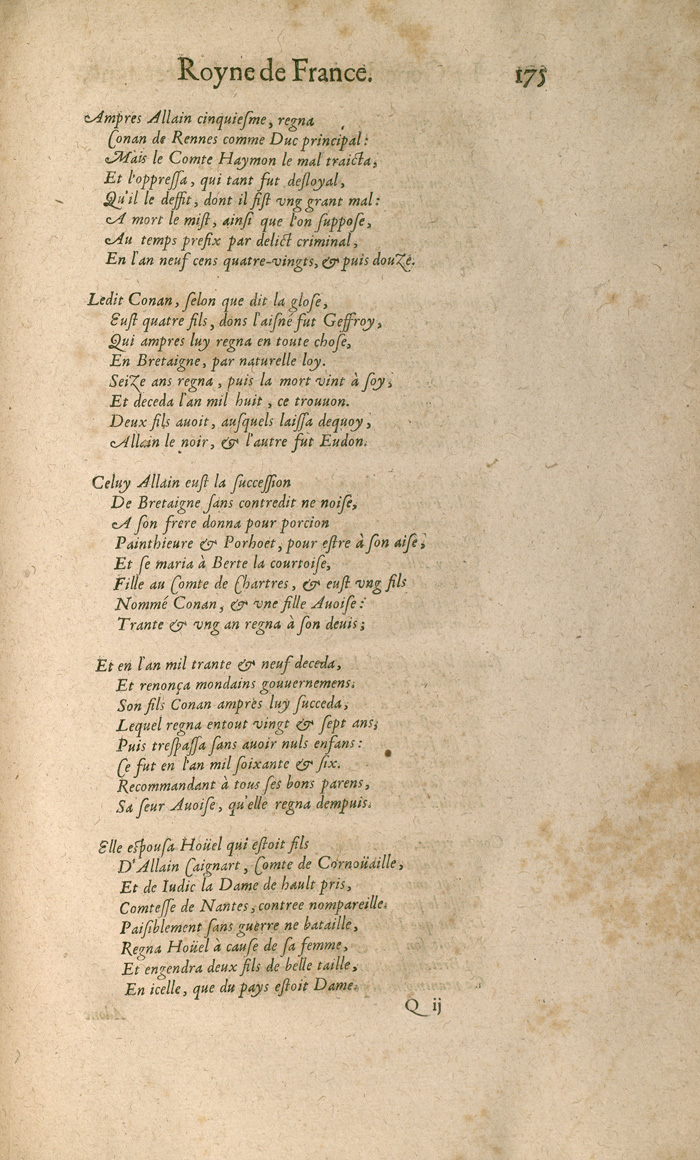 Royne de France. 175
Ampres Allain cinquieſme, regna
Conan de Rennes comme Duc principal:
Mais le Comte Haymon le mal traicta,
Et l'oppreſſa, qui tant fut deſloyal,
Qu'il le deffit, dont il fiſt vng grant mal:
A mort le miſt, ainſi que l'on ſuppoſe,
Au temps prefix par delict criminal,
En l'an neuf cens quatre-vingts, & puis douze.
Ledit Conan, ſelon que dit la gloſe,
Euſt quatre fils, dons l'aiſné fut Geffroy,
Qui ampres luy regna en toute choſe,
En Bretaigne, par naturelle loy.
Seize ans regna, puis la mort vint à ſoy,
Et deceda l'an mil huit, ce trouuon.
Deux fils auoit, auſquels laiſſa dequoy,
Allain le noir, & l'autre fut Eudon.
Celuy Allain euſt la ſucceſſion
De Bretaigne ſans contredit ne noiſe,
A ſon frere donna pour porcion
Painthieure & Porhoet, pour eſtre à ſon aiſe;
Et ſe maria à Berte la courtoiſe,
Fille au Comte de Chartres, & euſt vng fils
Nommé Conan, & vne fille Auoiſe:
Trante & vng an regna à ſon deuis;
Et en l'an mil trante & neuf deceda,
Et renonça mondains gouuernemens.
Son fils Conan ampres luy ſucceda,
Lequel regna entout vingt & ſept ans;
Puis treſpaſſa ſans auoir nuls enfans:
Ce fut en l'an mil ſoixante & ſix.
Recommandant à tous ſes bons parens,
Sa ſeur Auoiſe, qu'elle regna dempuis.
Elle eſpouſa Hoüel qui eſtoit fils
D'Allain Caignart, Comte de Cornoüaille,
Et de Iudic la Dame de hault pris,
Comteſſe de Nantes, contree nompareille.
Paiſiblement ſans guerre ne bataille,
Regna Hoüel à cauſe de ſa femme,
Et engendra deux fils de belle taille,
En icelle, que du pays eſtoit Dame.
Q ij